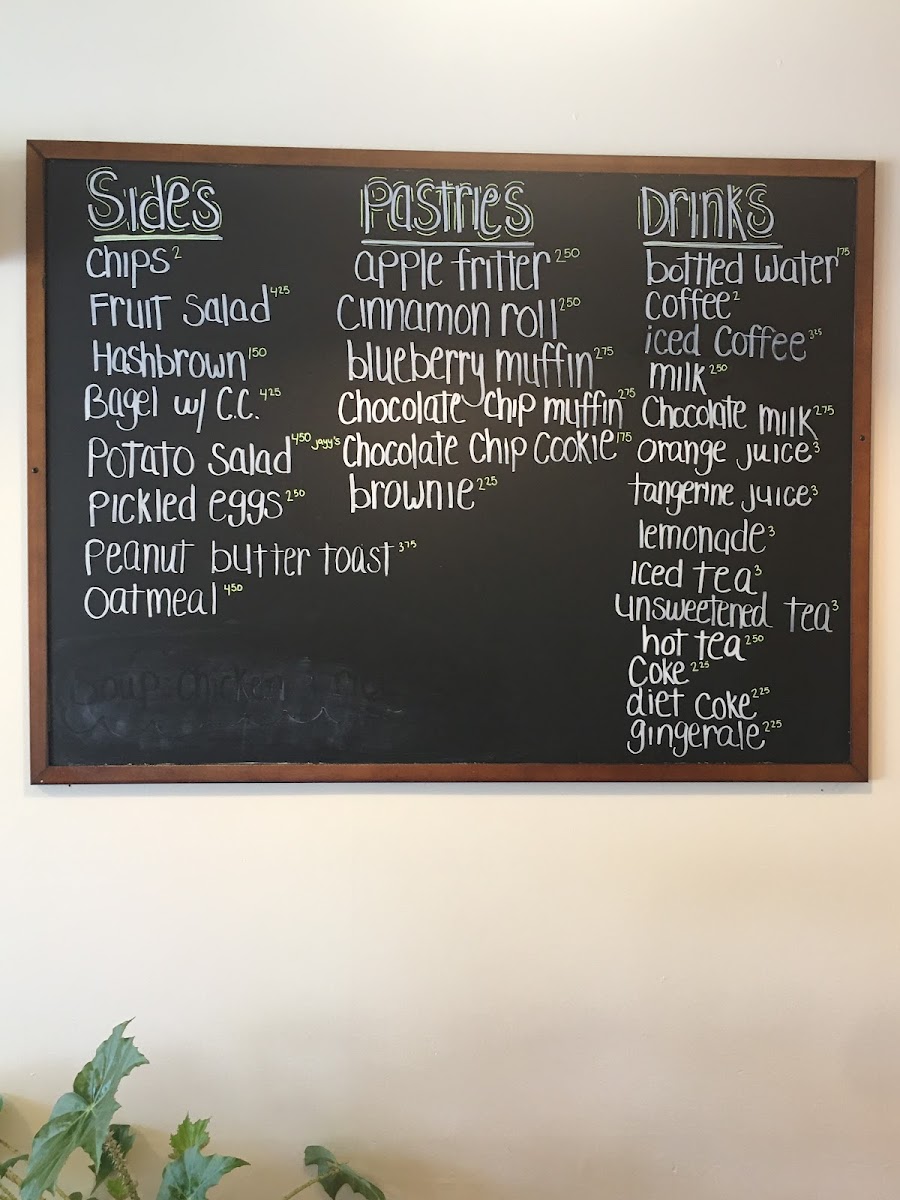 Sides
Chips 2
Fruit Salad 425
Hashbrown 150
Bagel w/ C.C. 425
Potato Salad 450 jayy's
Pickled eggs 250
Peanut butter toast 375
Oatmeal 450
Soup: Chicken
Pastries
apple fritter 250
Cinnamon roll 250
blueberry muffin 275
Chocolate chip muffin 275
Chocolate Chip Cookie 175
brownie 225
Drinks
bottled water 175
Coffee 2
iced Coffee 325
milk 250
Chocolate milk 275
orange juice 3
tangerine juice 3
lemonade 3
Iced tea 3
unsweetened tea 3
hot tea 250
Coke 225
diet Coke 225
gingerale 225